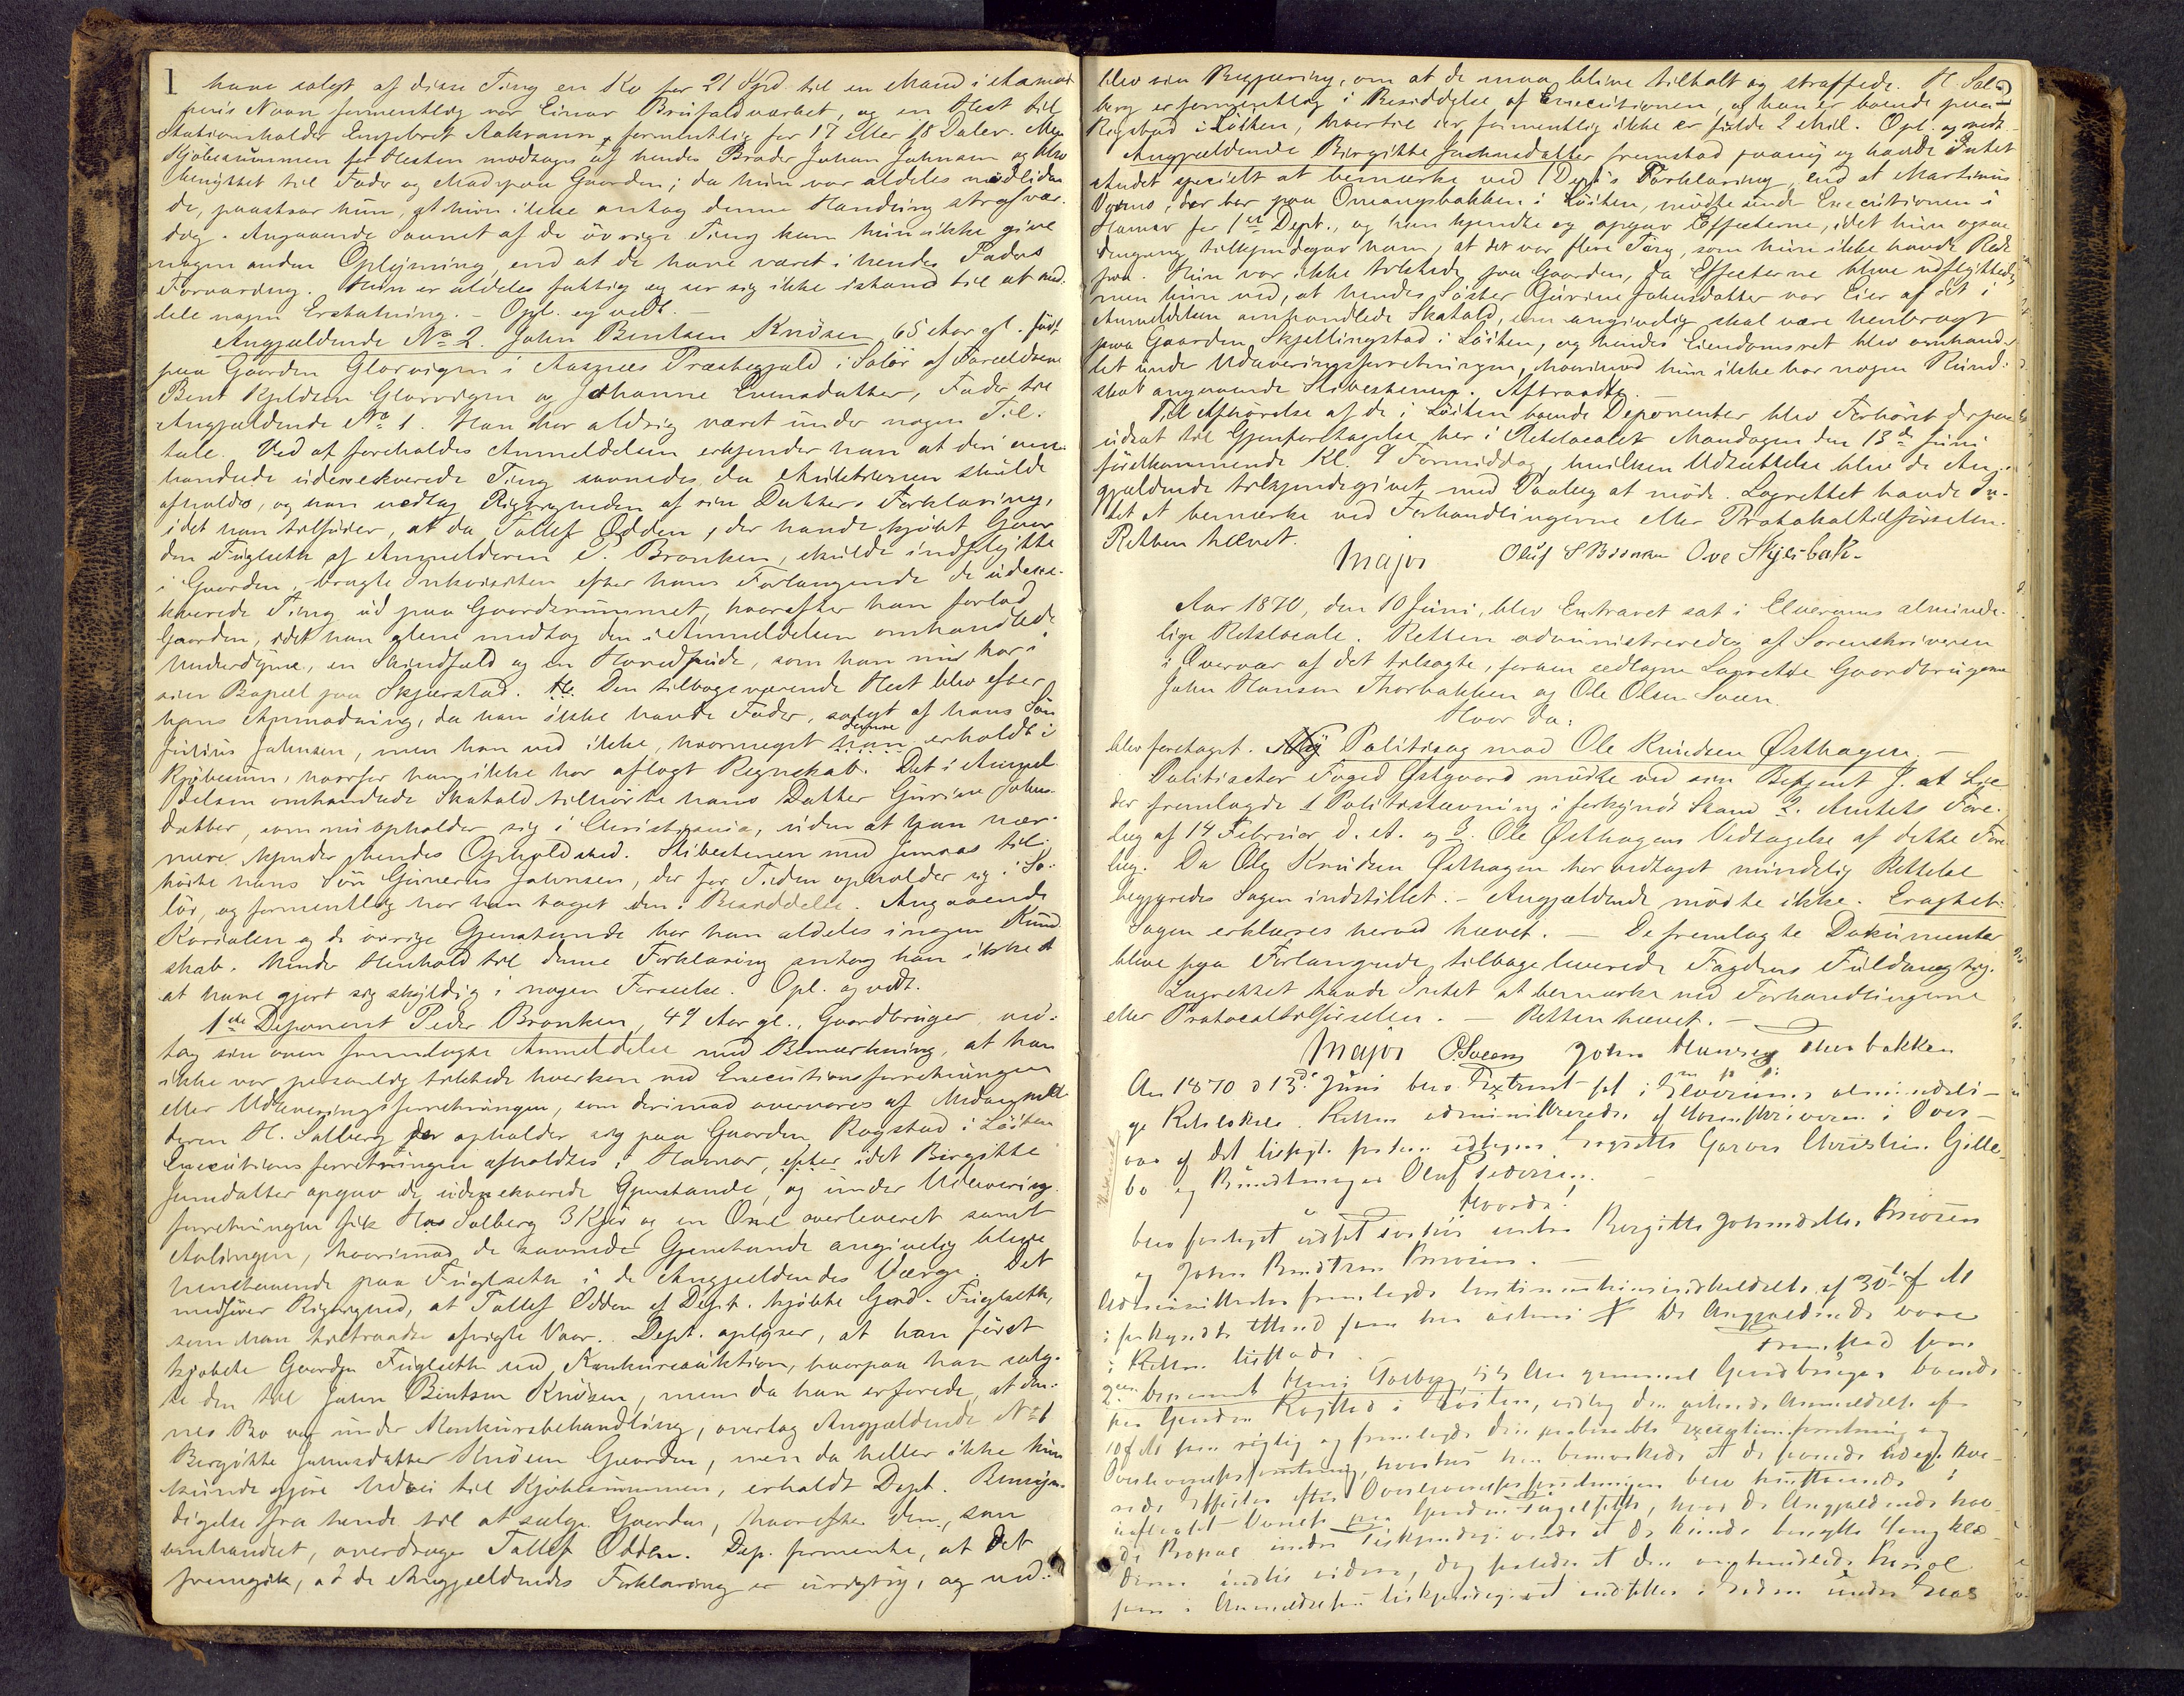 1
have solgt af disse Ting en Ko for 21 Spd. til en Mand i Hamar
hvis Navn formentlig var Einar Brufaldværket, og en Hest til
Stationsholder Engebret Aakrann, formentlig for 17 eller 18 Daler.
Kjöbesummen for Hesten modtoges af hendes Broder Johan Johnsen og blev
benyttet til Foder og Mad paa Gaarden; da hun var aldeles nödliden-
de, paastaar hun, at hun ikke antog denne Handling strafvær-
dig. Angaaende Savnet af de övrige Ting kan hun ikke give
nogen anden Oplysning, end at de have været i hendes Faders
Forvaring. Hun er aldeles fattig og ser sig ikke istand til at ud-
lede nogen Erstatning. - Opl. og vedt. -
Angjældende No 2. John Bentsen Knösen, 65 Aar gl. födt
paa Gaarden Glorvigen i Aasnes Præstegjæld i Solör af Forældrene
Bent Kjeldsen Glorvigen og Johanne Evensdatter, Fader til
Angjældende No 1. Han har aldrig været under nogen Til-
tale. Ved at foreholdes Anmeldelsen erkjender han at de i om-
handlede udexekverede Ting savnedes, da Auktionen skulde
afholdes, og han vedtog Rigtigheden af sin Datters Forklaring,
idet han tilföier, at da Tollef Odden, der havde kjöbt Gaar-
den Fuglseth af Anmelderen P. Bronken, skulde indflytte
i Gaarden, bragte Inkvisiten efter hans Forlangende de udexe-
kverede Ting ud paa Gaardsrummet, hvorefter han forlod
Gaarden, idet han alene medtog den i Anmeldelsen omhandlede
Underdyne, en Skindfeld og en Hovedpude, som han nu har i
sin Bopæl paa Skjærstad. Den tilbageværende Hest blev efter
hans Anmodning, da han ikke havde Foder, solgt af hans Sön
Julius Johnsen, men han ved ikke, hvormeget denne erholdt i
Kjöbesum, hvorfor han ikke har aflagt Regnskab. Det i Anmel-
delsen omhandlede Skatold tilhörte hans Datter Gurine Johns-
datter, som nu opholder sig i Christiania, uden at han nær-
mere kjender hendes Opholdssted. Slibestenen med Jernaas til-
hörte hans Sön Gunerius Johnsen, der for Tiden opholder sig i So-
lör, og formentlig har han taget den i Besiddelse. Angaaende
Kariolen og de övrige Gjenstande har han aldeles ingen Kund-
skab. Under Henhold til denne Forklaring antog han ikke
at have gjort sig skyldig i nogen Forseelse. Opl. og vedt.
1ste Deponent Peder Bronken, 49 Aar gl., Gaardbruger, ved-
tog sin oven fremlagte Anmeldelse med Bemærkning, at han
ikke var personlig tilstede hverken ved Executionsforretningen
eller Udleveringsforretningen, som derimod overværes af Medanmel-
deren H. Solberg der opholder sig paa Gaarden Rogstad i Löiten
Executionsforretningen afholdtes i Hamar, efter idet Birgitte
Johnsdatter opgav de udexekverede Gjenstande, og under Udleverings-
forretningen fik Hans Solberg 3 Kjör og en Oxe overleveret samt
Avlingen, hvorimod de savnede Gjenstande angivelig bleve
henstaaende paa Fuglseth i de Angjældendes Værge. Det
medförer Rigtighed, at Tollef Odden af Dept. kjöbte Grd. Fuglseth,
som han tiltraadte afvigte Vaar. Dept. oplyser, at han först
kjöbte Gaarden Fuglseth ved Konkursauktion, hvorpaa han solg-
te den til John Bentsen Knösen, men da han erfarede, at den-
nes Bo var under Konkursbehandling, overtog Angjældende No 1
Birgitte Johnsdatter Knösen Gaarden, men da heller ikke hun
kunde gjöre Udvei til Kjöbesummen, erholdt Dept. Bemyn-
digelse fra hende til at sælge Gaarden, hvorefter den, som
omhandlet, overdroges Tollef Odden. Dep. formente, at det
fremgik, at de Angjældendes Forklaring er urigtig, og ned-
2
blev sin Begjæring, om at de maa blive tiltalt og straffede. H. Sol-
berg er formentlig i Besiddelse af Executionen, og han er boende paa
Rogstad i Löiten, hvortil der formentlig ikke er fulde 2 Mil. Opl. og vedt.
Angjældende Birgitte Johnsdatter fremstod paany og havde Intet
Andet specielt at bemærke ved 1 Dept's Forklaring, end at Martinus
der bor paa Omangsbakken i Löiten, mödte under Executionen i
Hamar for 1ste Dept., og han kjendte og opgav Effecterne, idet hun ogsaa
dengang tilkjendegav ham, at det var flere Ting, som hun ikke havde Rede
paa. Hun var ikke tilstede paa Gaarden, da Effecterne bleve udflyttede,
men hun ved, at hendes Söster Gurine Johnsdatter var Eier af det i
Anmeldelsen omhandlede Skatold, som angivelig skal være henbragt
paa Gaarden Skjellingstad i Löiten, og hendes Eiendomsret blev omhand-
let under Udleveringsforretningen, hvorimod hun ikke har nogen Kund-
skab angaaende Slibestenen. Aftraadte. -
Til Afhörelse af de i Löiten boende Deponenter blev Forhöret derpaa
udsat til Gjenforetagelse her i Retslocalet Mandagen den 13de Juni
förstkommende Kl. 9 Formiddag, hvilken Udsættelse blev de An-
gjældende tilkjendegivet med Paalæg at möde. Lagrettet havde In-
tet at bemærke ved Forhandlingerne eller Protokoltilförselen.
Retten hævet.
Major Oluf S Ove Skjærbæk
Aar 1870, den 10 Juni, blev Extraret sat i Elverums alminde-
lige Retslocale. Retten administreredes af Sorenskriveren
i Overvær af det tilsagte, forhen edtagne Lagrette Gaardbrugerne
John Hansen Thorbakken og Ole Olsen Sveen.
Hvor da:
blev foretaget. Ny Politisag mod Ole Knudsen Østhagen. -
Politiactor Foged Østgaard mödte ved sin Betjent J.
der fremlagde 1 Politistævning i forkyndt Stand 2. Amtets Fore-
læg af 14 Februar d. A. og 3. Ole Østhagens Vedtagelse af dette Fore-
læg. Da Ole Knudsen Østhagen har vedtaget mindelig Rettelse
begjæredes Sagen indstillet. - Angjældende mödte ikke. Eragtet:
Sagen erklæres herved hævet. - De fremlagte Dokumenter
bleve paa Forlangende tilbageleverede Fogdens Fuldmægtig.
Lagrettet havde Intet at bemærke ved Forhandlingerne
eller Protocoltilförselen. - Retten hævet. -
Major O. Sveen John Hansen Thorbakken
Aar 1870 d 13de Juni blev Extraret sat i Elverums almindeli-
ge Retslokale. Retten administreredes af Sorenskriveren i Over-
vær af det tilsagte forhen edtagne Lagrette Garver Christian Gille-
bo og Oluf Pedersen.
Hvorda!
blev foretaget udsat Forhör imod Birgitte Johnsdatter Knösen
og John Bendtsen Knösen. -
Administrator fremlagde af 30te f M
i forkyndt Stand De Angjældende vare
i Retten tilstede. Fremstod som
2den Deponent Hans Solberg, Aar gammel Gaardbruger boende
paa Gaarden Rogstad i Löiten, vedtog den Anmeldelse af
10 f M som rigtig og fremlagde den Executionsforretning og
Overleveringsforretning, hvorhos han bemærkede at de savnede udexekve-
rede Effecter efter Overleveringsforretningen blev henstaaende i
paa Gaarden Fuglseth, hvor de Angjældende hav-
de Bopæl under Tilkjendegivende at de kunde benytte Sengklæ-
derne indtil videre, dog at den omhandlede Kariol
som i Anmeldelsen tilkjendegivet